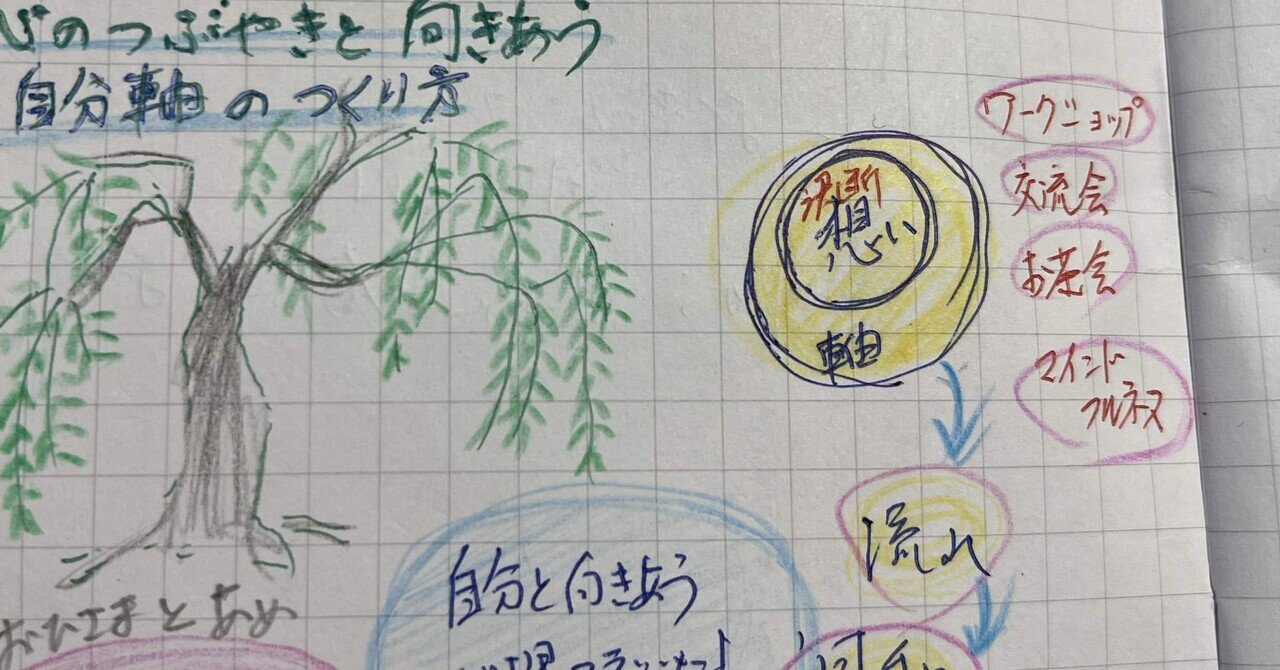 心のつぶやきと向きあう
自分軸のつくり方
ワークショップ
交流会
お茶会
マインド
フルネス
決断
想い
軸
流れ
自分と向きあう
おひさまとあめ